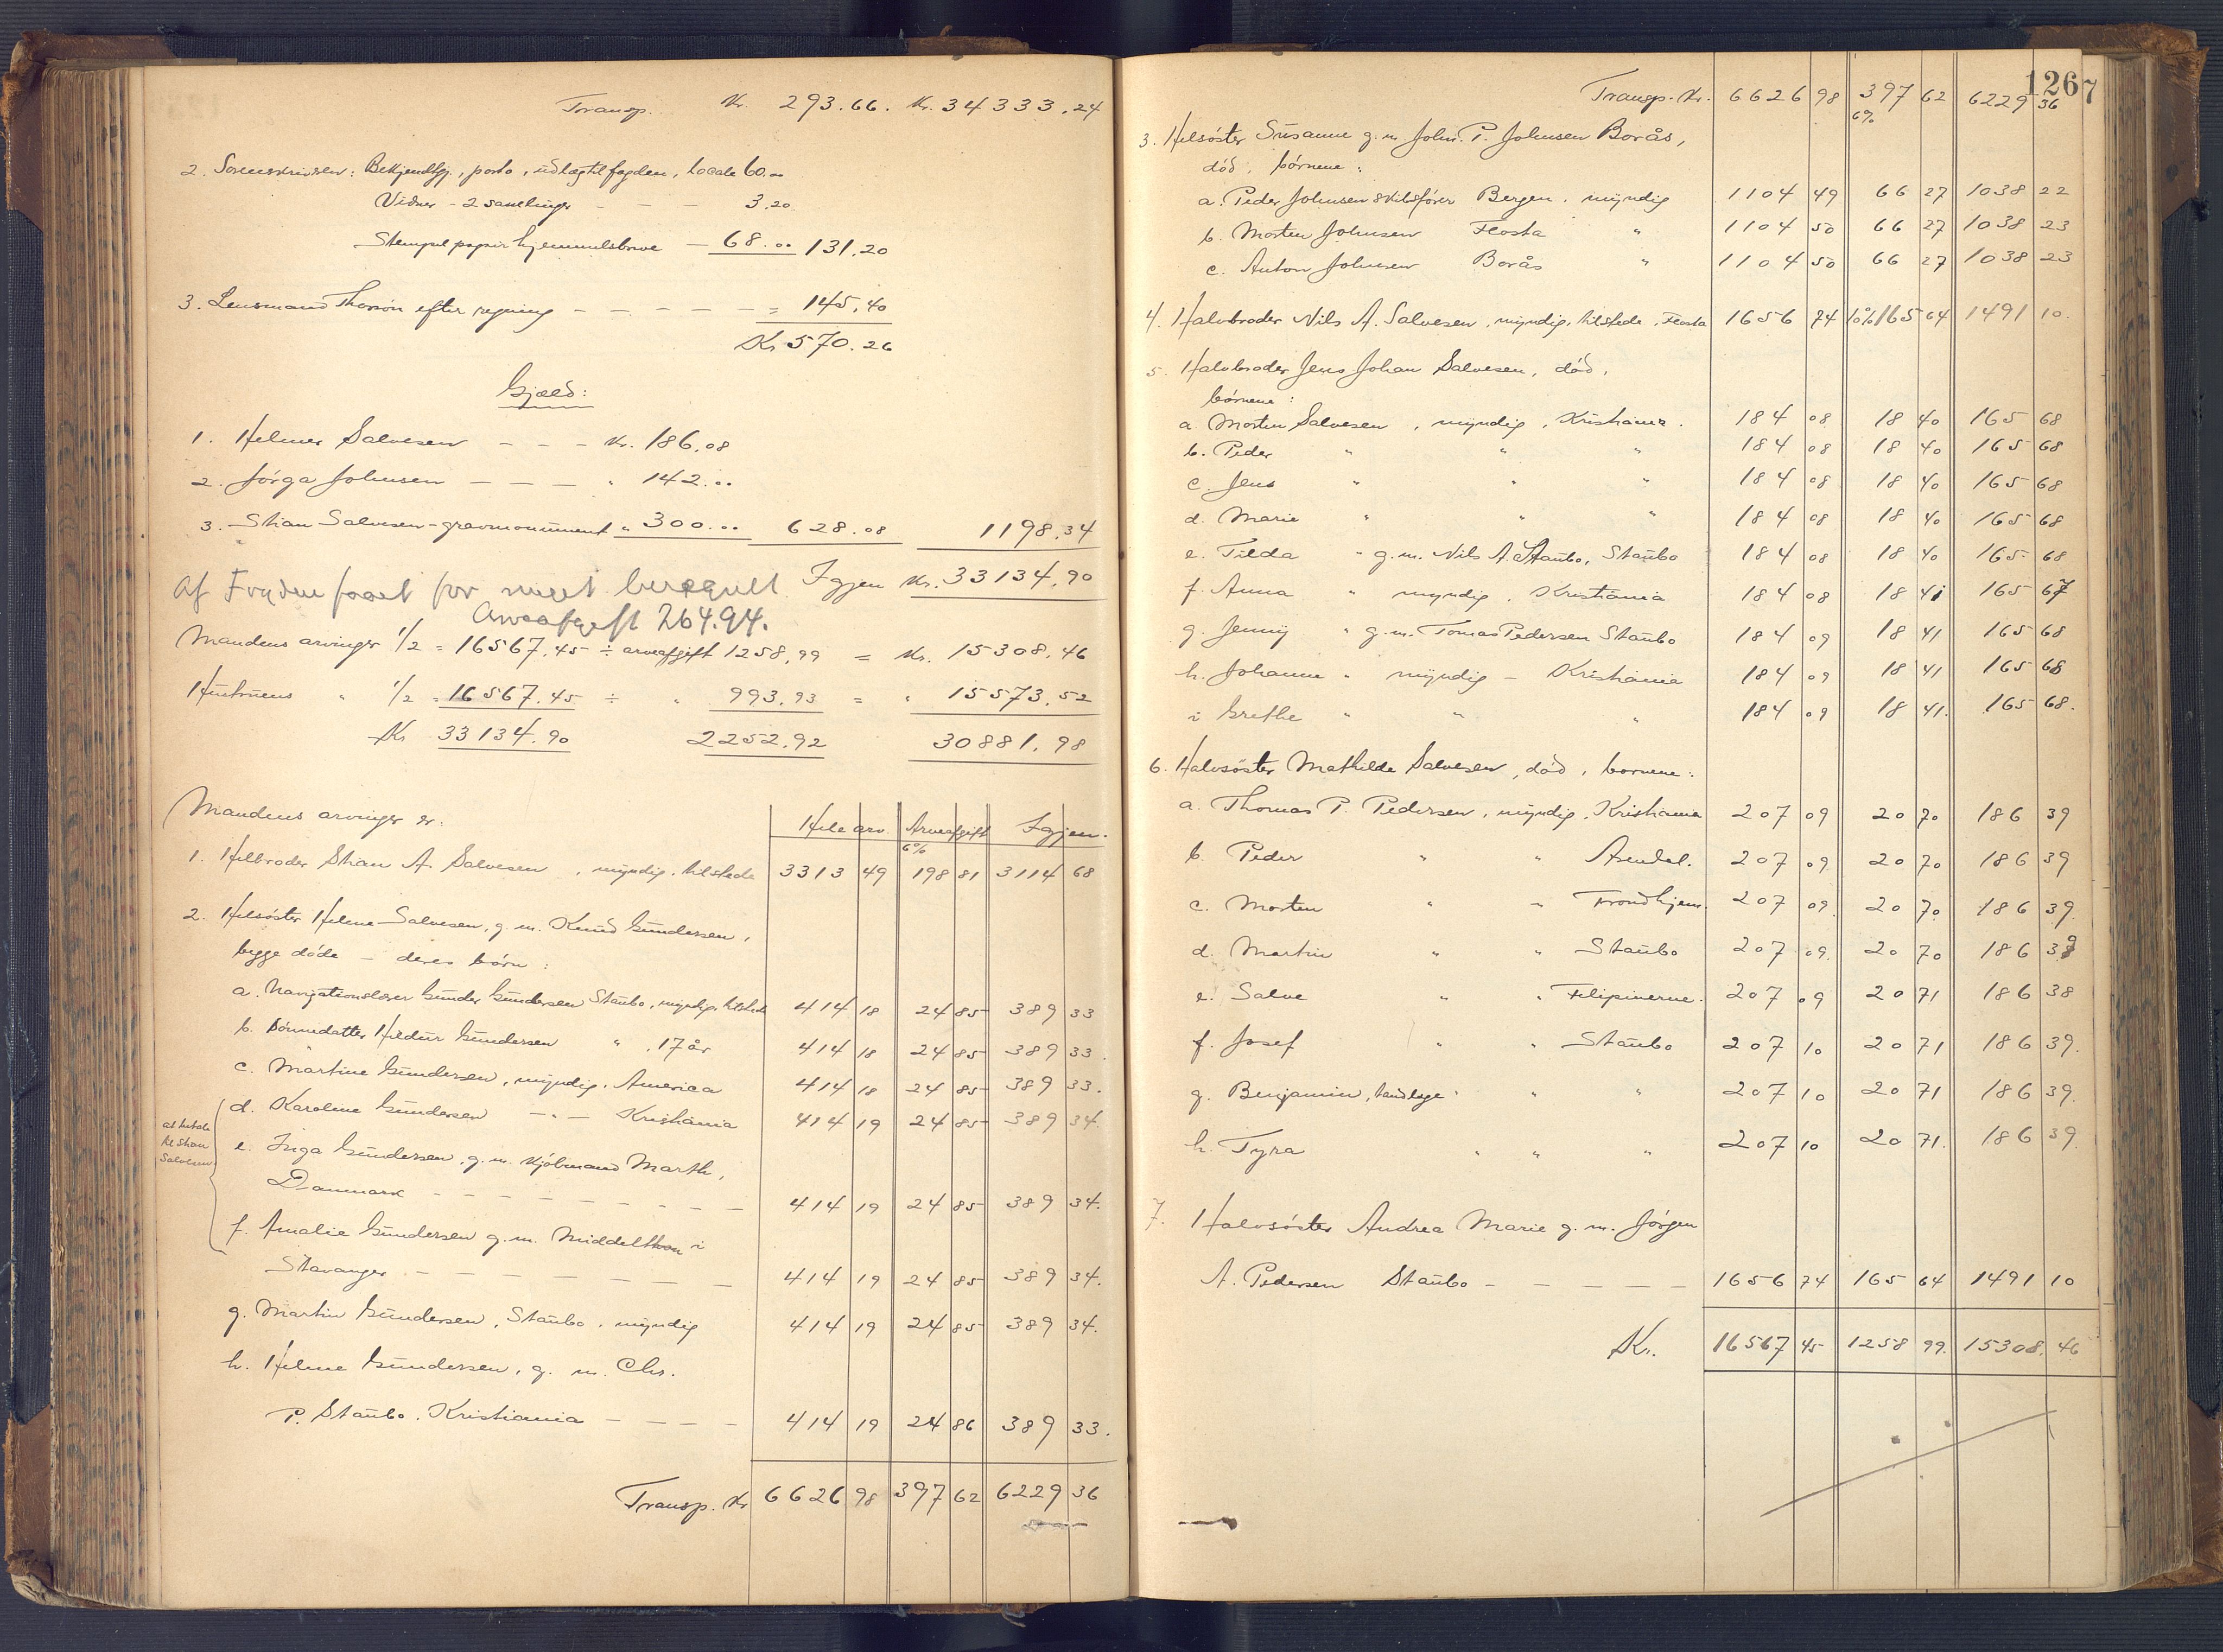 Transp. Kr. 293.66. Kr. 34333.24
2. Sorenskriveren: Bekjendtgj., porto, udlæg til fogden, Locale 60.00
Vidner - 2 samlinger - - - 3.20
Stempel papir hjemmelsbreve - 68.00 131.20
3. Lensmand Thorsön efter regning - - - - - = 145.40
Kr. 570.26
Gjæld:
1. Helmer Salvesen - - - Kr. 186.08
2. Jörga Johnsen - - - " 142.00
3. Stian Salvesen - gravmonument " 300.00 628.08 1198.34
Igjen Kr. 33134.90
Af Fogden faaet for meget beregnet
Arveafgift 264.94.
Mandens arvinger 1/2 = 16567.45 ÷ arveafgift 1258.99 = Kr. 15308.46
Hustruens " 1/2 = 16567.45 ÷ " 993.93 = " 15573.52
Kr 33134.90 2252.92 30881.98
Mandens arvinger er: Hele arv. Arveafgift Igjen.
6%
1. Helbroder Stian A. Salvesen, myndig, tilstede 3313 49 198 81 3114 68
2. Helsöster Helene Salvesen, g. m. Knud Gundersen,
begge döde - deres börn:
a. Navigationslærer Gunder Gundersen Staubo, myndig, tilstede 414 18 24 85 389 33
b. Sönnedatter Hildur Gundersen " , 17 år 414 18 24 85 389 33.
c. Martine Gundersen, myndig, America 414 18 24 85 389 33.
d. Karoline Gundersen - " - Kristiania 414 19 24 85 389 34.
at betale
til Stian
Salvesen
e. Inga Gundersen, g. m. Kjöbmand Marth,
Danmark - - - - - - - - 414 19 24 85 389 34.
f. Amalie Gundersen g. m. Middelthon i
Stavanger - - - - - - - 414 19 24 85 389 34.
g. Martin Gundersen, Staubo, myndig 414 19 24 85 389 34.
h. Helene Gundersen, g. m. Chr.
P. Staubo. Kristiania - - - - 414 19 24 86 389 33.
Transp. Kr 6626 98 397 62 6229 36
1267
Transp. Kr. 6626 98 397 62 6229 36
6%
3. Helsöster Susanne g. m. John. P. Johnsen Borås,
död, börnene:
a. Peder Johnsen skibsförer Bergen, myndig 1104 49 66 27 1038 22
b. Morten Johnsen Flosta " 1104 50 66 27 1038 23
c. Anton Johnsen Borås " 1104 50 66 27 1038 23
4. Halvbroder Nils A. Salvesen, myndig, tilstede, Flosta 1656 74 10% 165 64 1491 10.
5. Halvbroder Jens Johan Salvesen, död,
börnene:
a Morten Salvesen, myndig, Kristiania. 184 08 18 40 165 68
b. Peder " " " 184 08 18 40 165 68
c. Jens " " " 184 08 18 40 165 68
d. Marie " " " 184 08 18 40 165 68
e. Tilda " g. m. Nils A. Staubo, Staubo 184 08 18 40 165 68
f. Anna " myndig, Kristiania 184 08 18 41 165 67
g. Jenny " g. m. Tomas Pedersen Staubo 184 09 18 41 165 68
h. Johanne " myndig - Kristiania 184 09 18 41 165 68
i Grethe " " " 184 09 18 41. 165 68.
6. Halvsöster Mathilde Salvesen, död, bornene:
a. Thomas P. Pedersen, myndig, Kristiania 207 09 20 70 186 39
b. Peder " " Arendal. 207 09 20 70 186 39
c. Morten " " Trondhjem. 207 09. 20 70 186 39.
d. Martin " " Staubo 207 09. 20 70 186 39
e. Salve " " Filipinerne. 207 09 20 71 186 38
f. Josef " " Staubo 207 10 20 71 186 39.
g. Benjamin, tandlæge " " " 207 10 20 71 186 39.
h. Tyra " " " 207 10 20 71. 186 39.
7. Halvsöster Andrea Marie g. m. Jörgen
A. Pedersen Staubo - - - - - 1656 74 165 64 1491 10
Kr. 16567 45 1258 99. 15308. 46